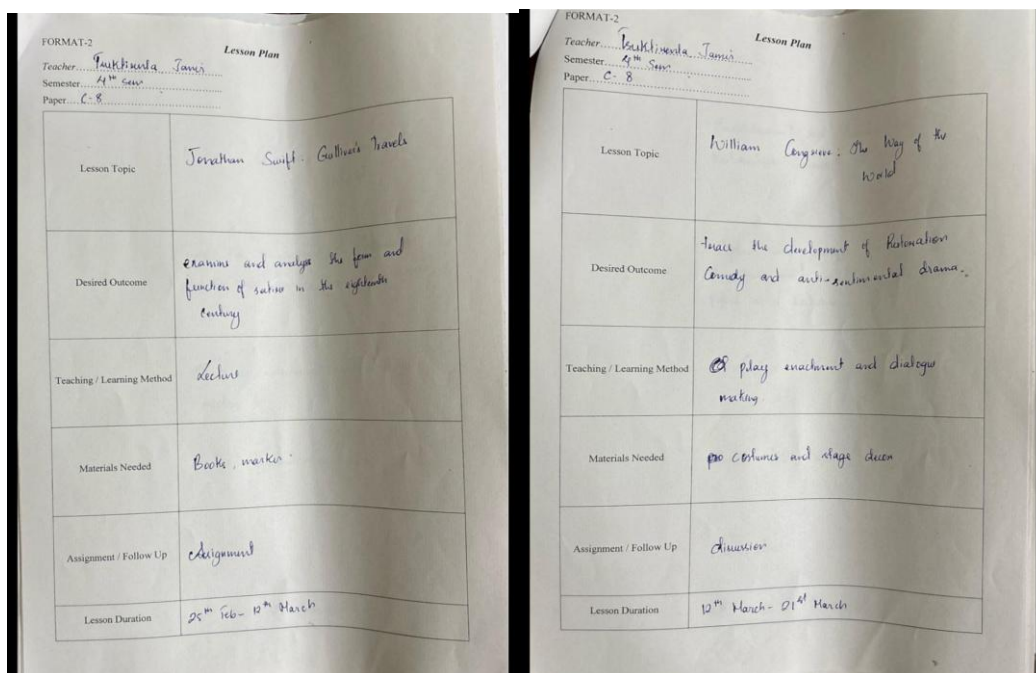 FORMAT-2
Lesson Plan
Teacher.... Jamir
Semester.... 4th Sem
Paper.... C-8
Lesson Topic
Jonathan Swift: Gulliver's Travels
Desired Outcome
examine and analyse the form and
function of satire in the eighteenth
century
Teaching / Learning Method
Lecture
Materials Needed
Books, marker.
Assignment / Follow Up
Assignment
Lesson Duration
25th Feb - 12th March
FORMAT-2
Lesson Plan
Teacher.... Jamir
Semester.... 4th Sem
Paper.... C-8
Lesson Topic
William Congreve: The Way of the
World
Desired Outcome
trace the development of Restoration
Comedy and anti-sentimental drama.
Teaching / Learning Method
play enactment and dialogue
making
Materials Needed
costumes and stage decor
Assignment / Follow Up
discussion
Lesson Duration
12th March - 21st March